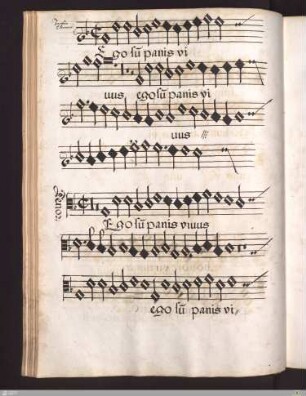 Ego sū panis vi
uus, ego sū panis vi
uus
Tenor
Ego sū panis viuus
ego sū panis vi,